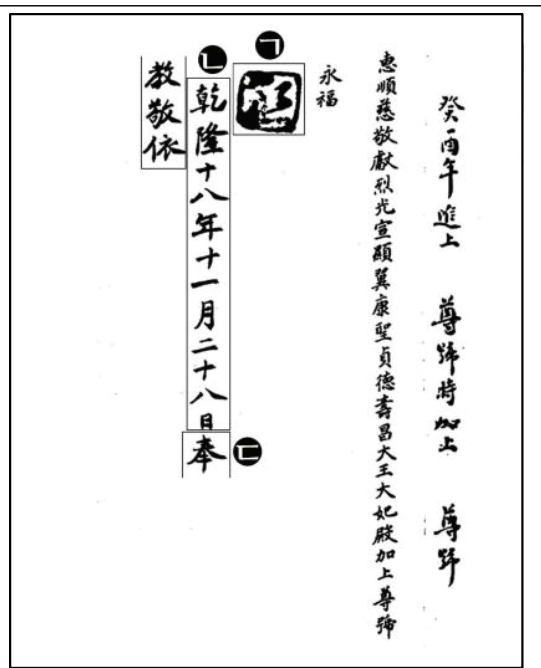 癸酉年進上 尊號時加上 尊號
惠順慈敬獻烈光宣顯翼康聖貞德壽昌大王大妃殿加上尊號
永福
ㄱ
ㄴ
乾隆十八年十一月二十八日奉
ㄷ
教敬依